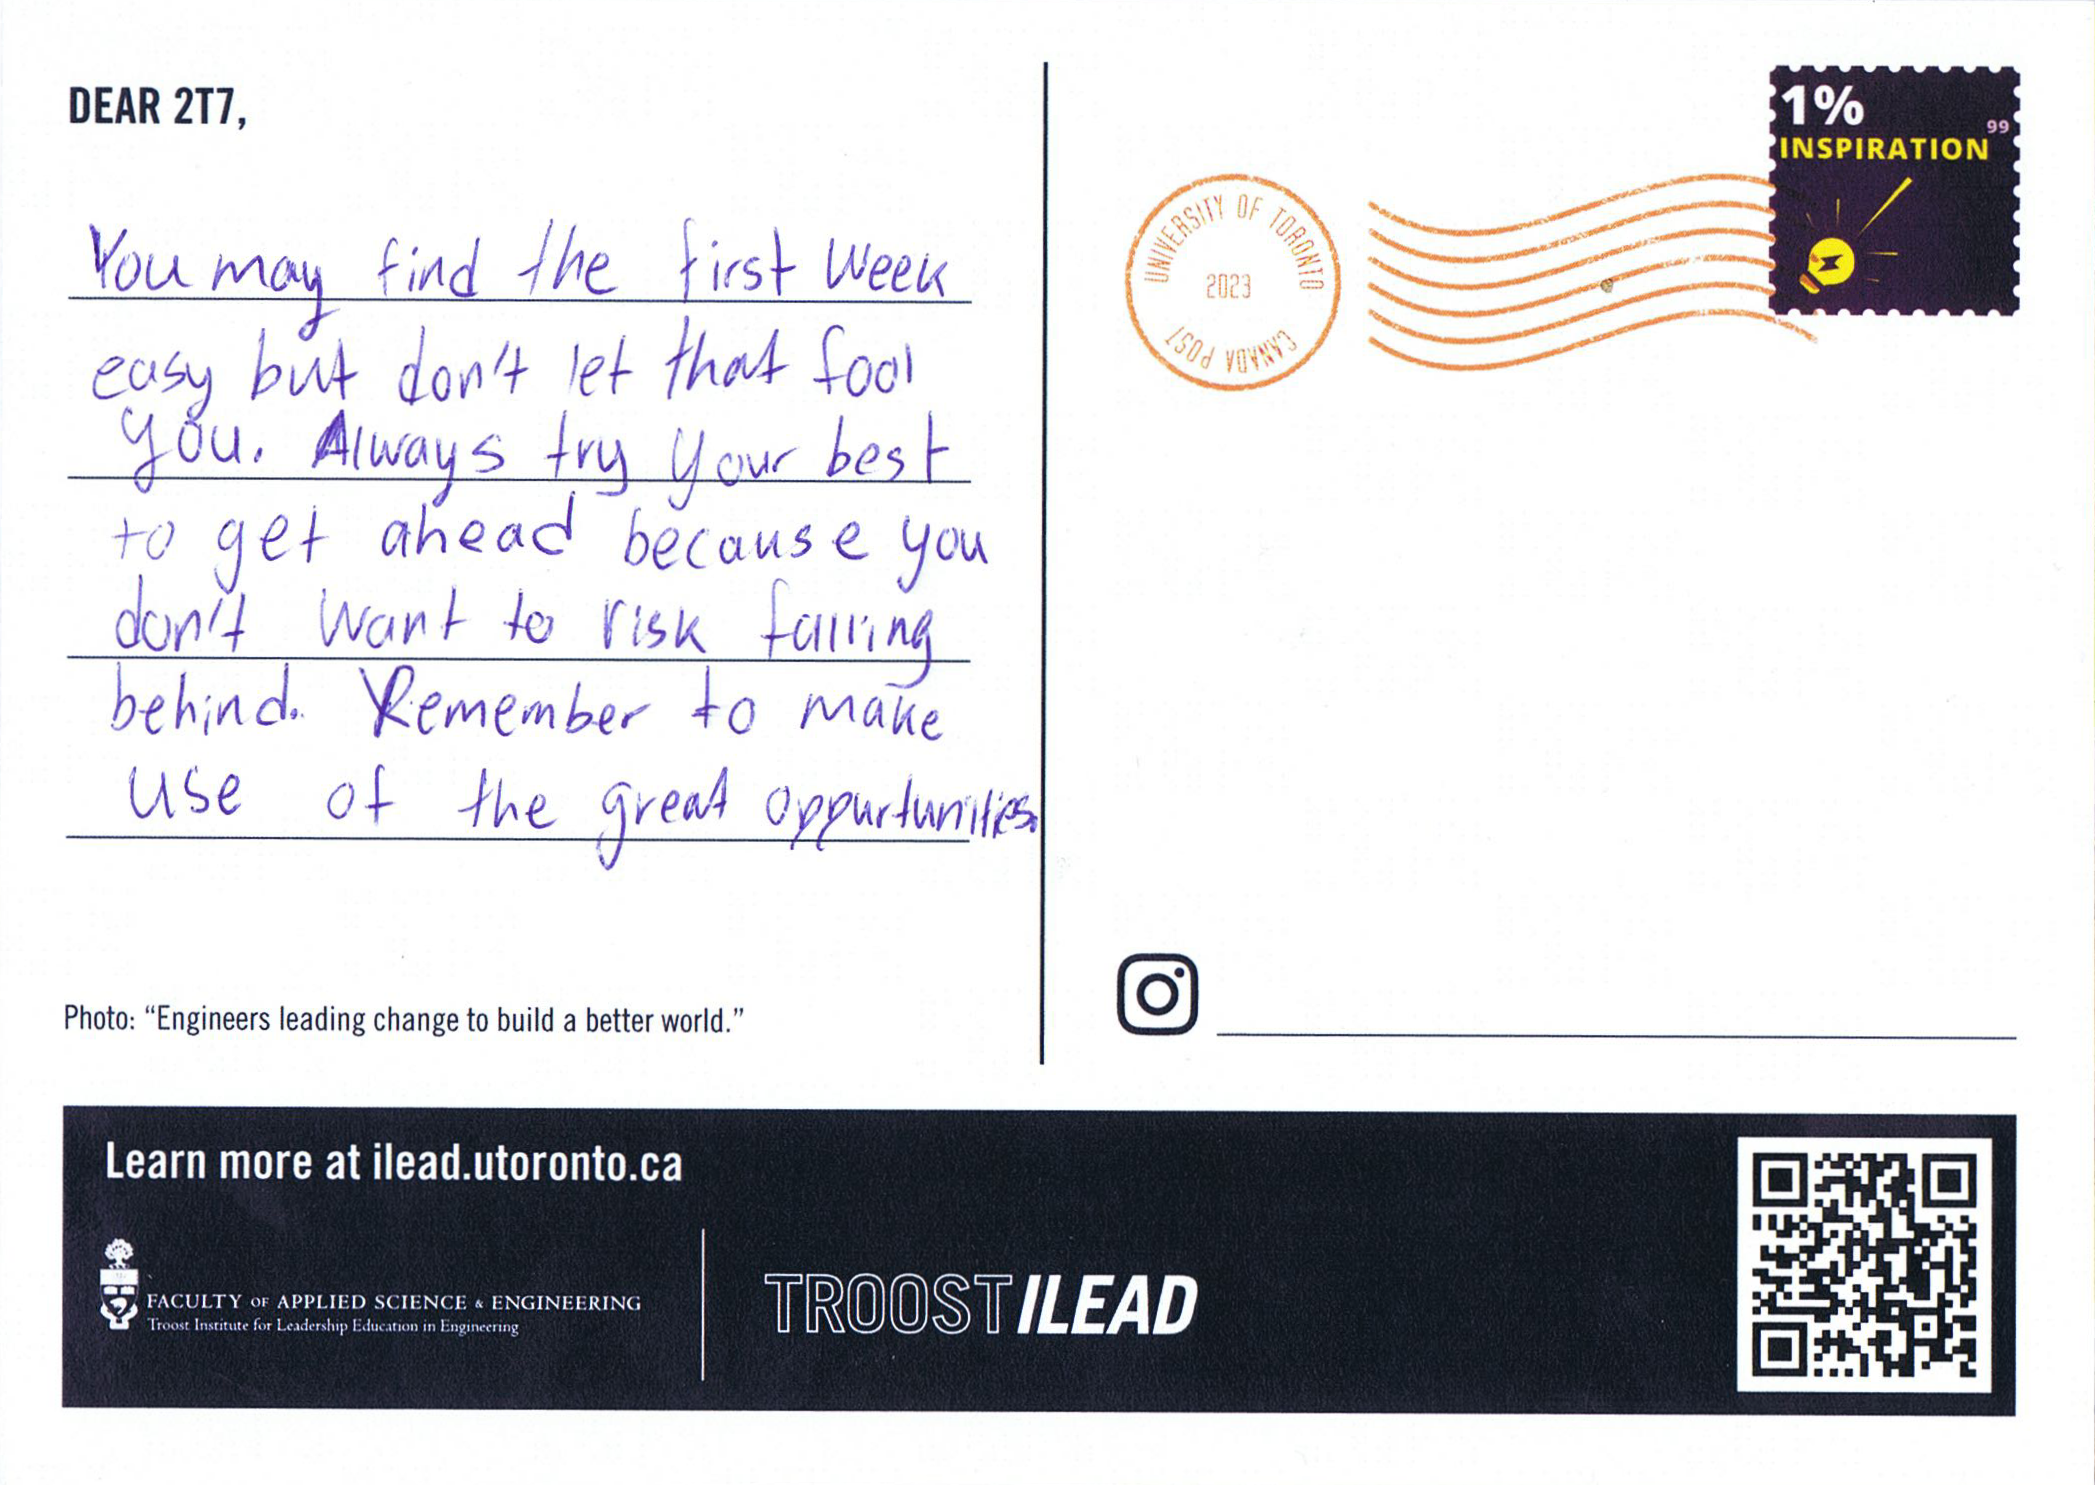 DEAR 2T7,
You may find the first Week
easy but don't let that fool
you. Always try your best
to get ahead because you
don't want to risk falling
behind. Remember to make
use of the great oppurtunities.
Photo: “Engineers leading change to build a better world.”
1%
99
INSPIRATION
UNIVERSITY OF TORONTO
2023
CANADA POST
Learn more at ilead.utoronto.ca
FACULTY OF APPLIED SCIENCE & ENGINEERING
Troost Institute for Leadership Education in Engineering
TROOST ILEAD